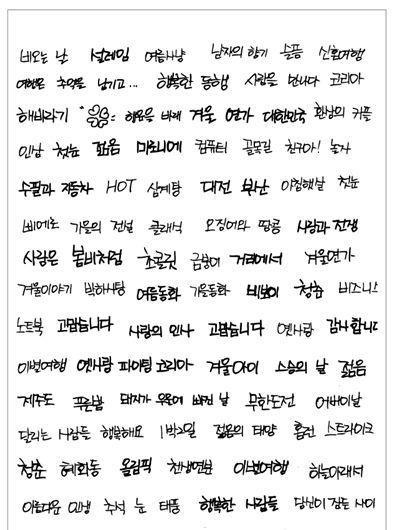 비오는 날 설레임 여름사냥 남자의 향기 슬픔 신혼여행
여행은 추억을 남기고... 행복한 동행 사랑을 만나다 코리아
해바라기 겨울 연가 대한민국 환상의 커플
인삼 첫눈 젊음 마로니에 컴퓨터 골목길 친구야! 놀자
수필과 자동차 HOT 삼계탕 대전 부산 아침햇살 첫눈
삐에로 가을의 전설 클래식 오징어와 땅콩 사랑과 전쟁
사랑은 봄비처럼 초콜릿 금붕어 거리에서 겨울연가
겨울이야기 박하사탕 여름동화 가을동화 비보이 청춘 비즈니스
노트북 고맙습니다 사랑의 인사 고맙습니다 옛사랑 감사합니다
이번여행 옛사랑 파이팅 코리아 겨울아이 스승의 날 젊음
제주도 푸른밤 돼지가 우물에 빠진 날 무한도전 어버이날
달리는 사람들 행복해요 1박2일 젊음의 태양 홈런 스트라이크
청춘 혜화동 올림픽 천생연분 이번여행 하늘아래서
아름다운 인생 추석 눈 태풍 행복한 사람들 당신이 잠든 사이